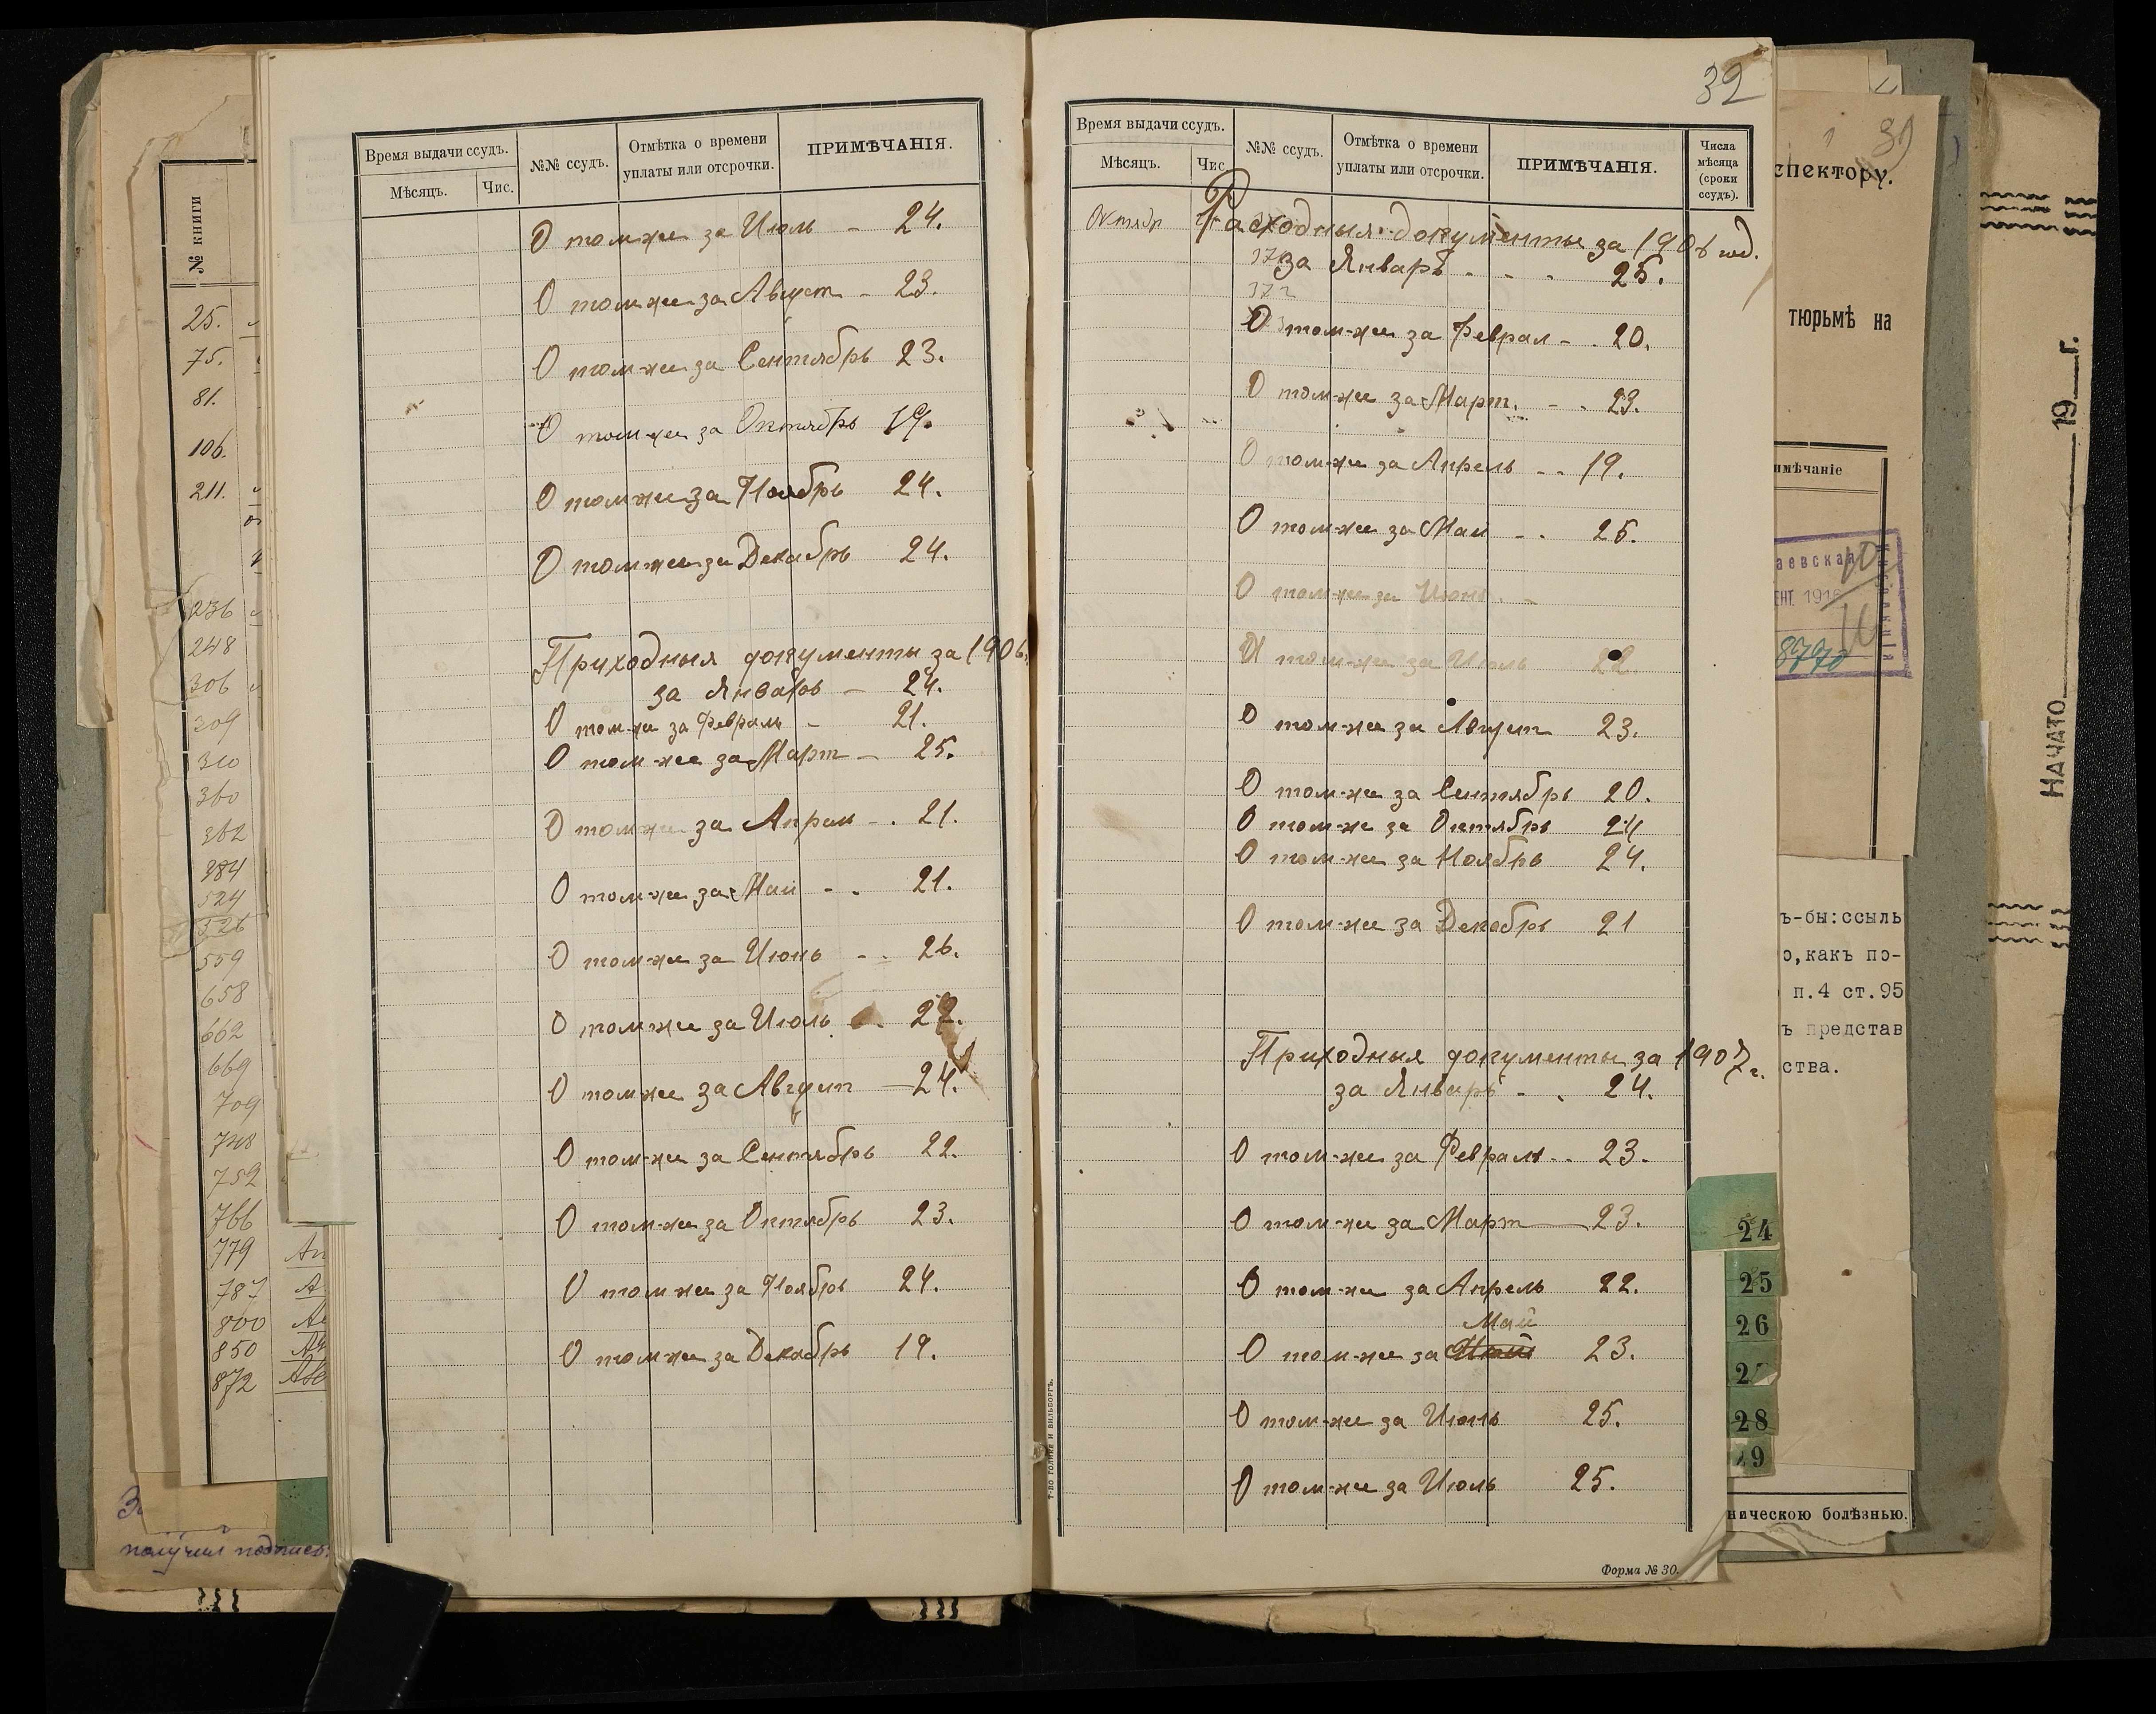 № книги
25.
75.
81.
106.
211.
236
248
306
309
310
360
362
384
524
526
559
658
662
669
709
748
752
766
779
787
800
850
872
получил подпись
Время выдачи ссудъ.
Мѣсяцъ.
Чис.
№№ ссудъ.
Отмѣтка о времени
уплаты или отсрочки.
ПРИМѢЧАНІЯ.
О томъ-же за Июль - 24.
О томъ-же за Август - 23.
О томъ-же за Сентябрь 23.
О томъ-же за Октябрь 19.
О томъ-же за Ноябрь 24.
О томъ-же за Декабрь 24.
Приходныя документы за 1906г.
за Январь - 24.
О том-же за Февраль - 21.
О том-же за Март - 25.
О том-же за Апрел - . 21.
О том-же за Май - . 21.
О том-же за Июнь - . 26.
О том-же за Июль . 22.
О том-же за Август - 24.
О том-же за Сентябрь 22.
О том-же за Октябрь 23.
О том-же за Ноябрь 24.
О том-же за Декабрь 19.
Т-во Голике и Вильборгъ.
32
Время выдачи ссудъ.
Мѣсяцъ.
Чис.
№№ ссудъ.
Отмѣтка о времени
уплаты или отсрочки.
ПРИМѢЧАНІЯ.
Числа
мѣсяца
(сроки
ссудъ).
Октябр
Расходныя документы за 1906 год.
за Январь - - - 25.
372
О том-же за Феврал - . 20.
О том-же за Март. - . 23.
О том-же за Апрель - . 19.
О том-же за Май - . 25.
О том-же за Июнь . -
И том-же за Июль 22
О том-же за Август 23.
О том-же за Сентябрь 20.
О том-же за Октябрь 24
О том-же за Ноябрь 24.
О том-же за Декабрь 21
Приходныя документы за 1907г.
за Январь - . 24.
О том-же за Февраль . . 23.
О том-же за Март - 23.
О том-же за Апрель 22.
Май
О том-же за 23.
О том-же за Июнь 25.
О том-же за Июль 25.
Форма № 30.
спектору.
тюрьмѣ на
имѣчаніе
аевская
ЕНТ. 1916
8770
ъ-бы:ссыль
о,какъ по-
п.4 ст.95
ъ представ
ства.
24
25
26
28
29
ническою болѣзнью.
Начато 19 г.